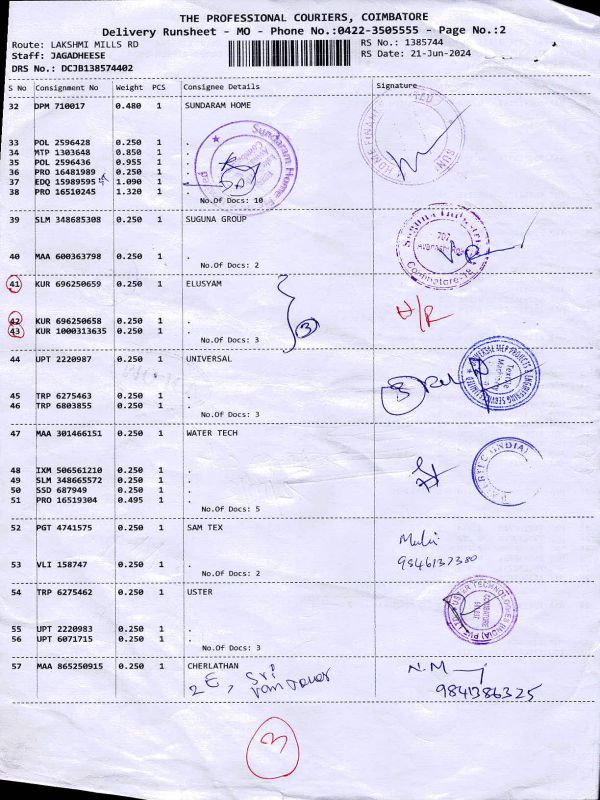 THE PROFESSIONAL COURIERS, COIMBATORE
Delivery Runsheet - MO - Phone No.:0422-3505555 - Page No.:2
Route: LAKSHMI MILLS RD RS No.: 1385744
Staff: JAGADHEESE RS Date: 21-Jun-2024
DRS No.: DCJB138574402
S No Consignment No Weight PCS Consignee Details Signature
32 DPM 710017 0.480 1 SUNDARAM HOME
33 POL 2596428 0.250 1 .
34 MTP 1303648 0.850 1 .
35 POL 2596436 0.955 1 .
36 PRO 16481989 0.250 1 .
37 EDQ 15989595 1.090 1 .
38 PRO 16510245 1.320 1 .
No.Of Docs: 10
39 SLM 348685308 0.250 1 SUGUNA GROUP
Suguna Industries
707
Avanashi Road
Coimbatore-18
40 MAA 600363798 0.250 1 .
No.Of Docs: 2
41 KUR 696250659 0.250 1 ELUSYAM
42 KUR 696250658 0.250 1 .
43 KUR 1000313635 0.250 1 .
3
H/R
No.Of Docs: 3
44 UPT 2220987 0.250 1 UNIVERSAL
45 TRP 6275463 0.250 1 .
46 TRP 6803855 0.250 1 .
No.Of Docs: 3
47 MAA 301466151 0.250 1 WATER TECH
48 IXM 506561210 0.250 1 .
49 SLM 348665572 0.250 1 .
50 SSD 687949 0.250 1 .
51 PRO 16519304 0.495 1 .
No.Of Docs: 5
52 PGT 4741575 0.250 1 SAM TEX
53 VLI 158747 0.250 1 .
9846137380
No.Of Docs: 2
54 TRP 6275462 0.250 1 USTER
55 UPT 2220983 0.250 1 .
56 UPT 6071715 0.250 1 .
No.Of Docs: 3
57 MAA 865250915 0.250 1 CHERLATHAN
2E, Sri
N.M
3